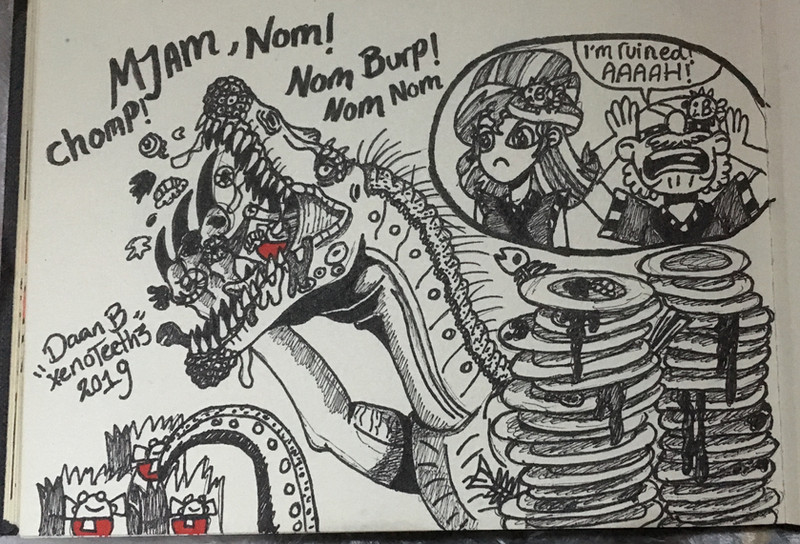 MJAM, Nom!
Chomp!
Nom Burp!
Nom Nom
I'm ruined!
AAAAH!
Daan B
"xenoTeeth3"
2019